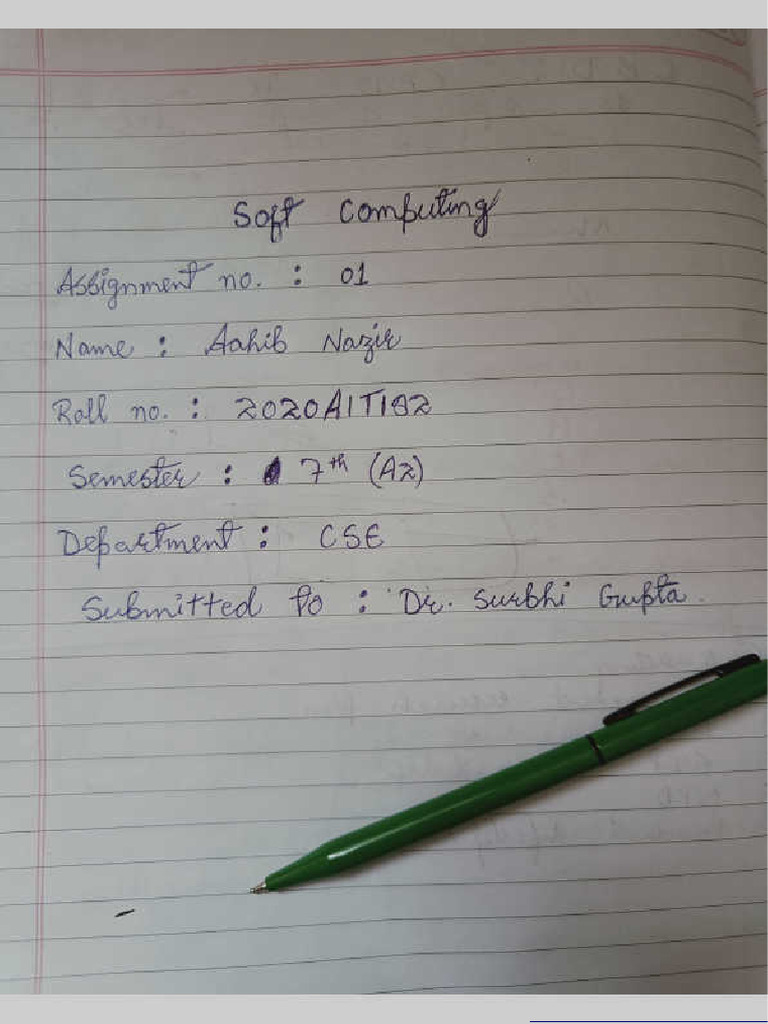 Soft Computing
Assignment no. : 01
Name : Aahib Nazir
Roll no. : 2020A1T182
Semester : 7th (A2)
Department : CSE
Submitted to : Dr. Surbhi Gupta.